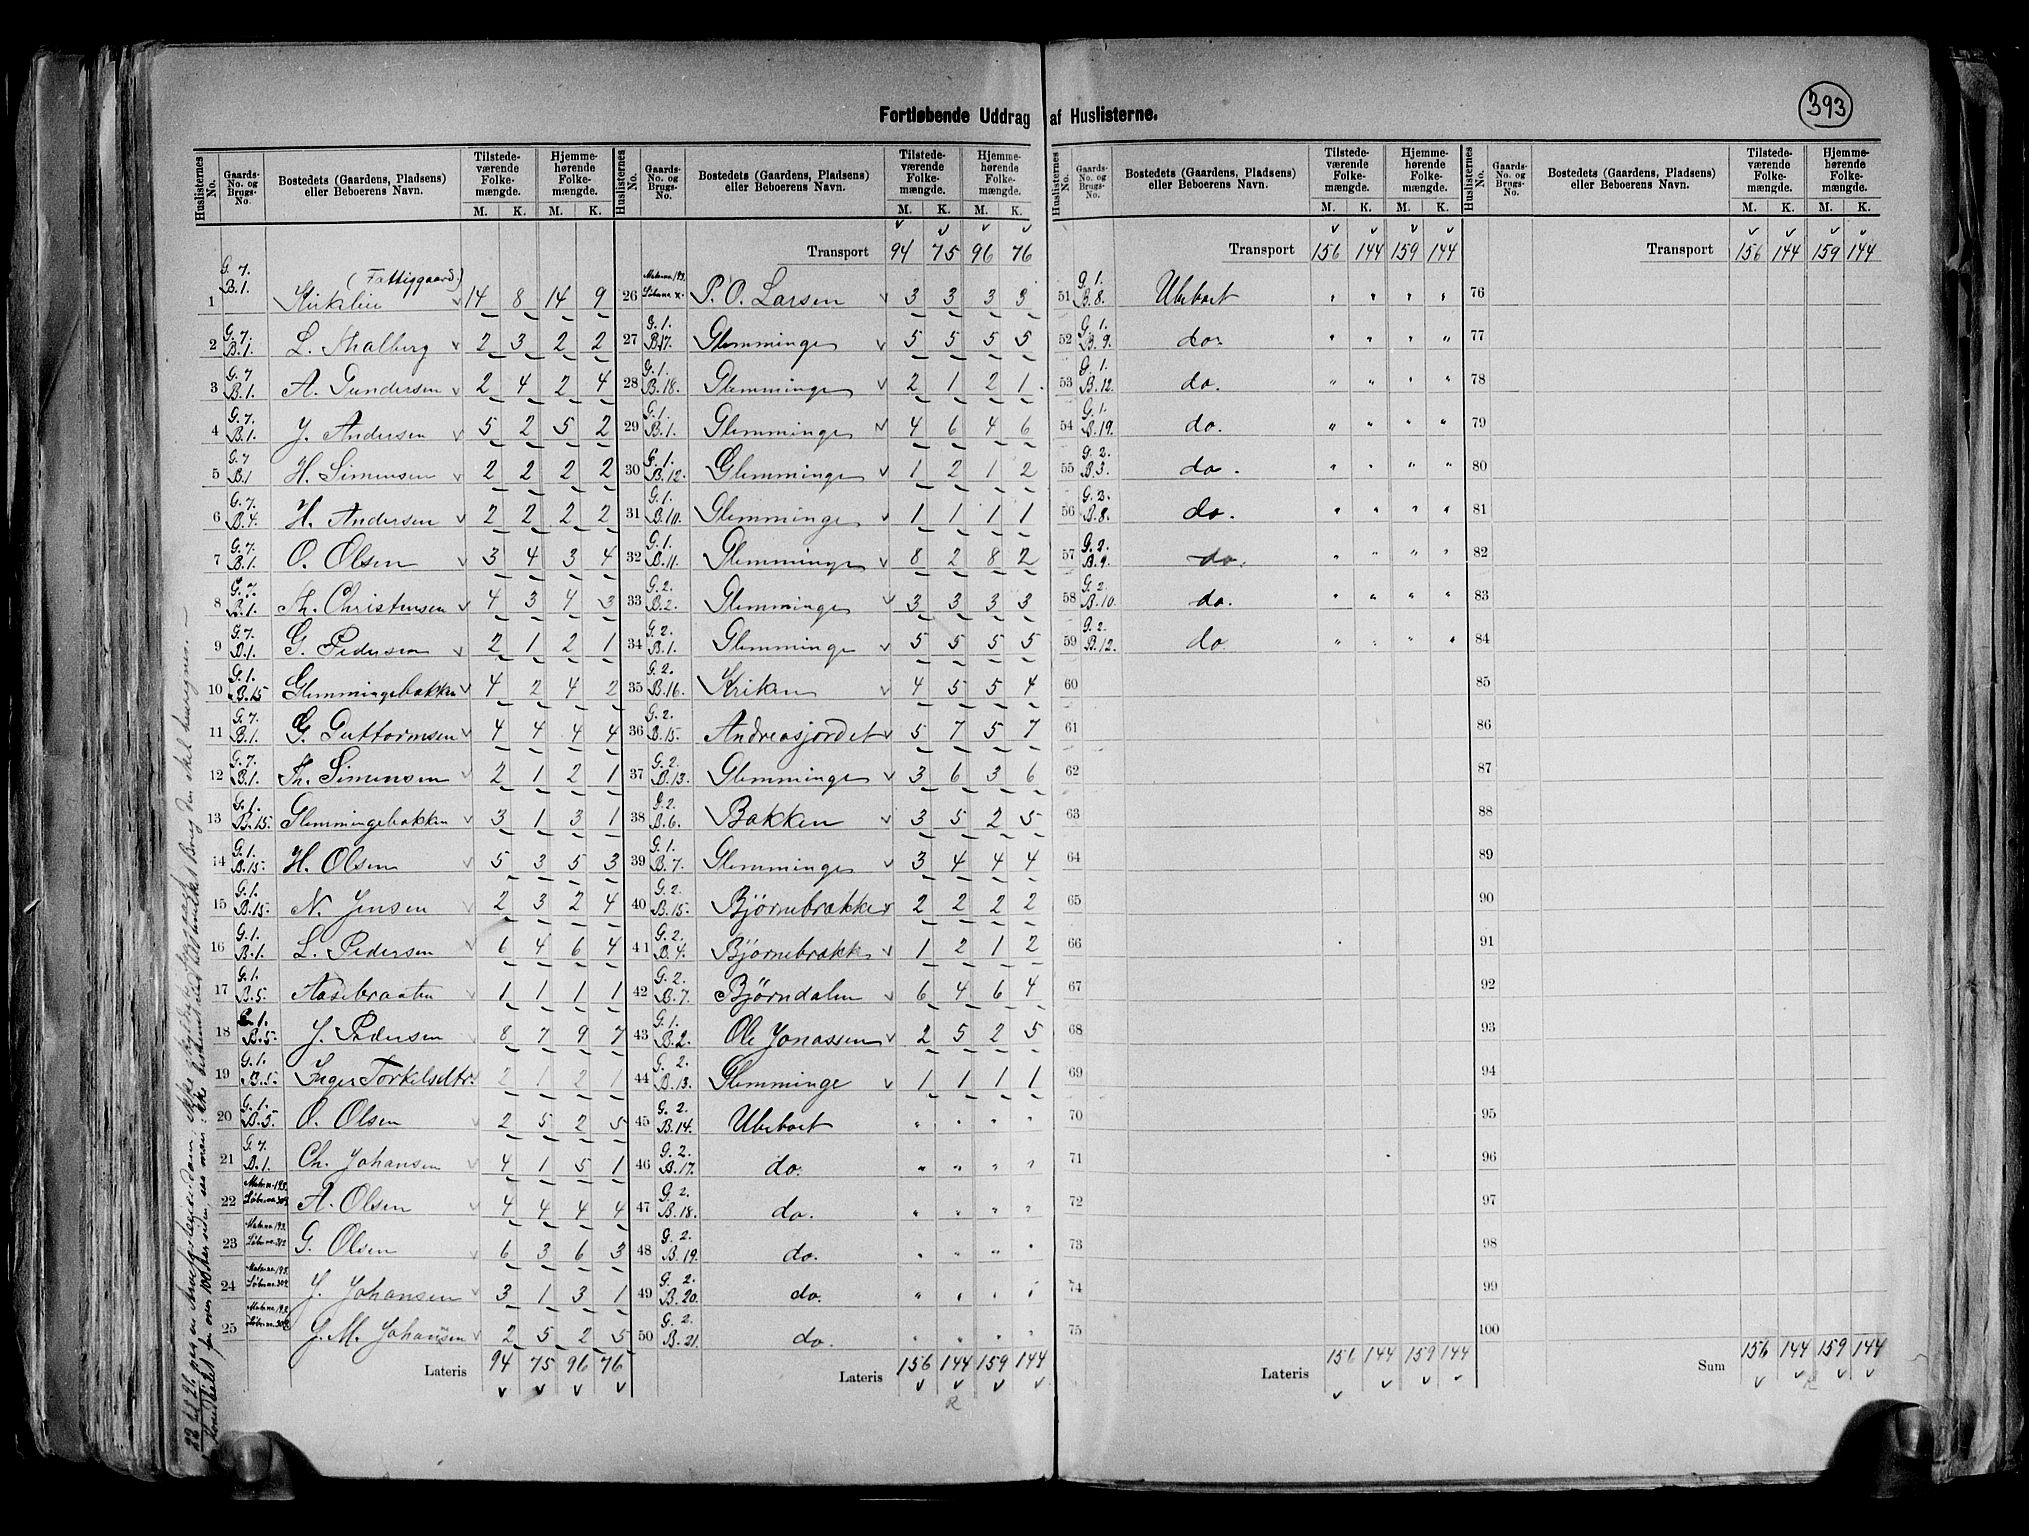 393
Fortløbende Uddrag af Huslisterne.
Huslisternes No. | Gaards-No. og Brugs-No. | Bostedets (Gaardens, Pladsens) eller Beboerens Navn. | Tilstedeværende Folkemængde. M. K. | Hjemmehørende Folkemængde. M. K.
1 G. 7. B. 1. (Fattiggaard) Kirkelie 14 8 14 9
2 G. 7. B. 1. L. Thalberg 2 3 2 2
3 G. 7 B. 1. A. Gundersen 2 4 2 4
4 G. 7. B. 1. J. Andersen 5 2 5 2
5 G. 7 B. 1 H. Simensen 2 2 2 2
6 G. 7. B. 4. H. Andersen 2 2 2 2
7 G. 7. B. 1. O. Olsen 3 4 3 4
8 G. 7. B. 1. Th. Christensen 4 3 4 3
9 G. 7. B. 1. G. Pedersen 2 1 2 1
10 G. 1. B. 15 Glemmingebakken 4 2 4 2
11 G. 7. B. 1. G. Guttormsen 4 4 4 4
12 G. 7. B. 1. Th. Simensen 2 1 2 1
13 G. 1. B. 15. Glemmingebakken 3 1 3 1
14 G. 1. B. 15. H. Olsen 5 3 5 3
15 G. 1. B. 15. N. Jensen 2 3 2 4
16 G. 1. B. 1. L. Pedersen 6 4 6 4
17 G. 1. B. 5. Aasebraaten 1 1 1 1
18 G. 1. B. 5. J. Pedersen 8 7 9 7
19 G. 1. B. 5. Inger Torkelsdtr. 2 1 2 1
20 G. 1. B. 5. O. Olsen 2 5 2 5
21 G 7. B. 1. Ch. Johansen 4 1 5 1
22 Matr. no. 193. Løbe no. 302. A. Olsen 4 4 4 4
23 Matr. no. 193. Løbe no. 302 G. Olsen 6 3 6 3
24 Matr. no. 193. Løbe no. 302. J. Johansen 3 1 3 1
25 Matr. no. 193. Løbe no. 302 G. M. Johansen 2 5 2 5
Lateris 94 75 96 76
Huslisternes No. | Gaards-No. og Brugs-No. | Bostedets (Gaardens, Pladsens) eller Beboerens Navn. | Tilstedeværende Folkemængde. M. K. | Hjemmehørende Folkemængde. M. K.
Transport 94 75 96 76
26 Matr. no. 193. Løbe no. x. P. O. Larsen 3 3 3 3
27 G. 1. B. 17. Glemminge 5 5 5 5
28 G. 1. B. 18. Glemminge 2 1 2 1
29 G. 1. B. 1. Glemminge 4 6 4 6
30 G. 1. B. 12. Glemminge 1 2 1 2
31 G. 1. B. 10. Glemminge 1 1 1 1
32 G. 1. B. 11. Glemminge 8 2 8 2
33 G. 2. B. 2. Glemminge 3 3 3 3
34 G. 2. B. 1. Glemminge 5 5 5 5
35 G. 2. B. 16. Kriken 4 5 5 4
36 G. 2. B. 15. Andreasjordet 5 7 5 7
37 G. 2. B. 13. Glemminge 3 6 3 6
38 G. 2. B. 6. Bakken 3 5 2 5
39 G. 1. B. 7. Glemminge 3 4 4 4
40 G. 2. B. 15. Bjørnebrække 2 2 2 2
41 G. 2. B. 4. Bjørnebrækk 1 2 1 2
42 G. 2. B. 7. Bjørndalen 6 4 6 4
43 G. 1. B. 2. Ole Jonassen 2 5 2 5
44 G. 2. B. 13. Glemminge 1 1 1 1
45 G. 2. B. 14. Ubeboet " " " "
46 G. 2. B. 17. do. " " " "
47 G. 2. B. 18. do. " " " "
48 G. 2. B. 19. do. " " " "
49 G. 2. B. 20. do. " " " "
50 G. 2. B. 21. do. " " " "
Lateris 156 144 159 144
R
Huslisternes No. | Gaards-No. og Brugs-No. | Bostedets (Gaardens, Pladsens) eller Beboerens Navn. | Tilstedeværende Folkemængde. M. K. | Hjemmehørende Folkemængde. M. K.
Transport 156 144 159 144
51 G. 1. B. 8. Ubeboet " " " "
52 G. 1. B. 9. do. " " " "
53 G. 1. B. 12. do. " " " "
54 G. 1. B. 19. do. " " " "
55 G. 2. B. 3. do. " " " "
56 G. 2. B. 8. do. " " " "
57 G. 2. B. 9. do. " " " "
58 G. 2. B. 10. do. " " " "
59 G. 2. B. 12. do " " " "
60
61
62
63
64
65
66
67
68
69
70
71
72
73
74
75
Lateris 156 144 159 144
Huslisternes No. | Gaards-No. og Brugs-No. | Bostedets (Gaardens, Pladsens) eller Beboerens Navn. | Tilstedeværende Folkemængde. M. K. | Hjemmehørende Folkemængde. M. K.
Transport 156 144 159 144
76
77
78
79
80
81
82
83
84
85
86
87
88
89
90
91
92
93
94
95
96
97
98
99
100
Sum 156 144 159 144
R